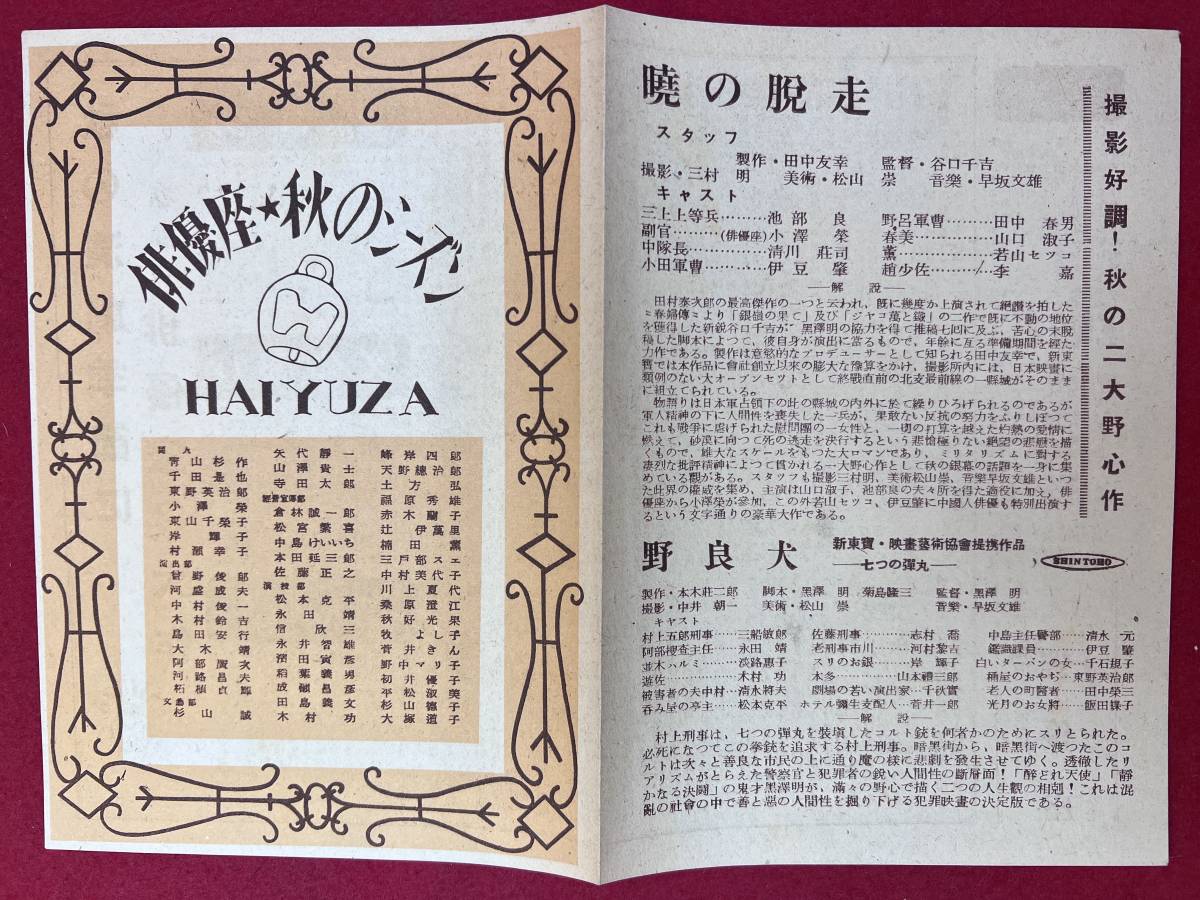 俳優座★秋のシズン
HAIYUZA
同人
青山杉作
千田是也
東野英治郎
小澤榮
東山千榮子
岸輝子
村瀬幸子
演出部
中村俊一
木村鈴吉
島田安行
大木靖
阿部廣次
文藝部
杉山誠
矢代靜一
山澤貴士
寺田太郎
經營宣傳部
倉林誠一郎
松宮繁喜
中島けいいち
本田延三郎
佐藤正之
演技部
松本克平
永田靖
信欣三
永井智雄
濱田寅彦
稲葉義男
成瀬昌彦
田島義文
木村功
峰岸四郎
天野總治郎
土方弘
福原秀雄
赤木蘭子
辻伊萬里
楠田薫
三戸部スエ
中村美代子
川上夏代
桑原澄江
秋好光果
牧よし子
菅井きん
野中マリ子
初井優子
杉山徳子
大塚道子
撮影好調!秋の二大野心作
曉の脫走
スタッフ
製作・田中友幸 監督・谷口千吉
撮影・三村 明 美術・松山 崇 音樂・早坂文雄
キャスト
三上上等兵………池部 良 野呂軍曹………田中 春男
副官………(俳優座)小澤 榮 春美…………山口 淑子
中隊長…………清川 莊司 薫……………若山セツコ
小田軍曹…………伊豆 肇 趙少佐…………李 嘉
──解 説──
田村泰次郎の最高傑作の一つと云われ、既に幾度か上演されて絕讃を拍した
〝春婦傳〟より「銀嶺の果て」及び「ジャコ萬と鐵」の二作で既に不動の地位
を獲得した新鋭谷口千吉が、黑澤明の協力を得て推稿七回に及ぶ、苦心の末脫
稿した脚本によつて、彼自身が演出に當るもので、年餘に亙る準備期間を經た
力作である。製作は意慾的なプロデューサーとして知られる田中友幸で、新東
寶では本作品に會社創立以來の膨大な豫算をかけ、撮影所内には、日本映畫に
類例のない大オープンセツトとして終戰直前の北支最前線の一縣城がそのまま
に組立てられている。
物語りは日本軍占領下の此の縣城の内外に於て繰りひろげられるのであるが
軍人精神の下に人間性を喪失した一兵が、果敢ない反抗の努力をふりしぼつて
これも戰爭に虐げられた慰問團の一女性と、一切の打算を越えた灼熱の愛情に
燃えて、砂漠に向つて死の逃走を決行するという悲愴極りない絕望の悲歷を描
くもので、雄大なスケールをもつた大ロマンであり、ミリタリズムに對する
凄烈な批評精神によつて貫かれる一大野心作として秋の銀幕の話題を一身に集
めている觀がある。スタッフも撮影三村明、美術松山崇、音樂早坂文雄といつ
た此界の權威を集め、主演は山口淑子、池部良の夫々所を得た適役に加え、俳
優座から小澤榮が參加、この外若山セツコ、伊豆肇に中國人俳優も特別出演す
るという文字通りの豪華大作である。
野良犬
新東寶・映畫藝術協會提携作品
──七つの彈丸──
SHINTOHO
製作・本木莊二郎 脚本・黑澤 明 菊島隆三 監督・黑澤 明
撮影・中井 朝一 美術・松山 崇 音樂・早坂文雄
キャスト
村上五郎刑事……三船敏郎 佐藤刑事…………志村 喬 中島主任警部……清水 元
阿部搜查主任……永田 靖 老刑事市川………河村黎吉 鑑識課員…………伊豆 肇
並木ハルミ………淡路惠子 スリのお銀………岸 輝子 白いターバンの女…千石規子
遊佐………………木村 功 本多…………山本禮三郎 桶屋のおやぢ…東野英治郎
被害者の夫中村…清水將夫 劇場の若い演出家…千秋實 老人の町醫者……田中榮三
呑み屋の亭主……松本克平 ホテル彌生支配人…菅井一郎 光月のお女將……飯田蝶子
──解 説──
村上刑事は、七つの彈丸を裝塡したコルト銃を何者かのためにスリとられた。
必死になつてこの拳銃を追求する村上刑事。暗黑街から、暗黑街へ渡つたこのコ
ルトは次々と善良な市民の上に通り魔の樣に悲劇を發生させてゆく。透徹したリ
アリズムがとらえた警察官と犯罪者の銳い人間性の斷層面!「醉どれ天使」「靜
かなる決鬪」の鬼才黑澤明が、滿々の野心で描く二つの人生觀の相剋!これは混
亂の社會の中で善と惡の人間性を掘り下げる犯罪映畫の決定版である。